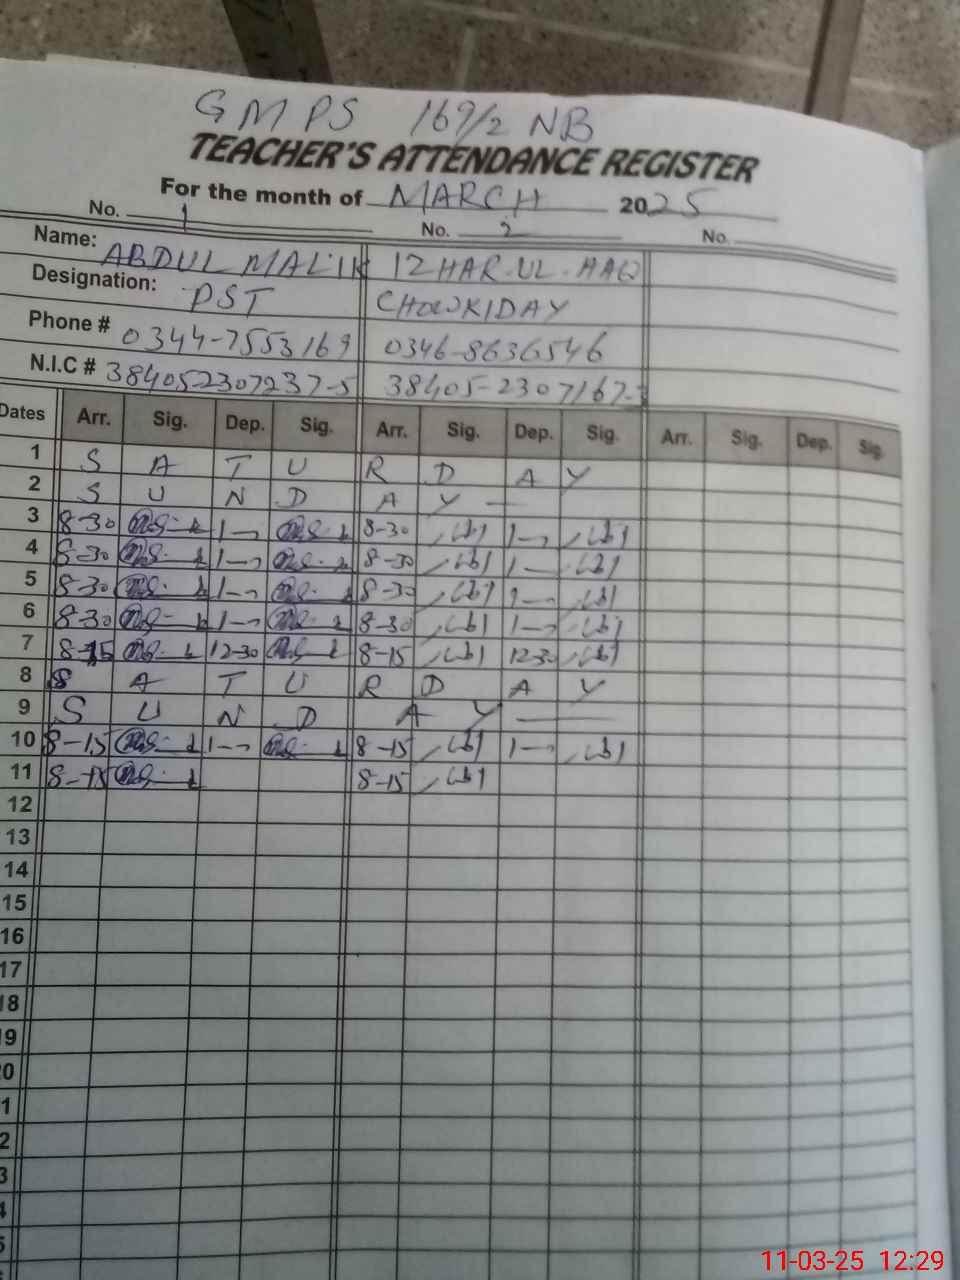 GMPS 169/2 NB
TEACHER'S ATTENDANCE REGISTER
For the month of MARCH 2025
No. 1 No. 2 No.
Name: ABDUL MALIK IZHAR-UL-HAQ
Designation: PST CHOWKIDAY
Phone # 0344-7553169 0346-8636546
N.I.C # 38405-2307237-5 38405-2307167-3
Dates Arr. Sig. Dep. Sig. Arr. Sig. Dep. Sig. Arr. Sig. Dep. Sig.
1 S A T U R D A Y
2 S U N D A Y —
3 8-30 1- 8-30 1-
4 8-30 1- 8-30 1-
5 8-30 1- 8-30 1-
6 8-30 1- 8-30 1-
7 8-15 12-30 8-15 12-30
8 S A T U R D A Y
9 S U N D A Y —
10 8-15 1- 8-15 1-
11 8-15 8-15
12
13
14
15
16
17
18
19
0
1
2
3
4
5
11-03-25 12:29